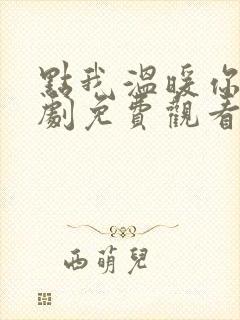 點我溫暖你
劇免費觀看
西萌兒